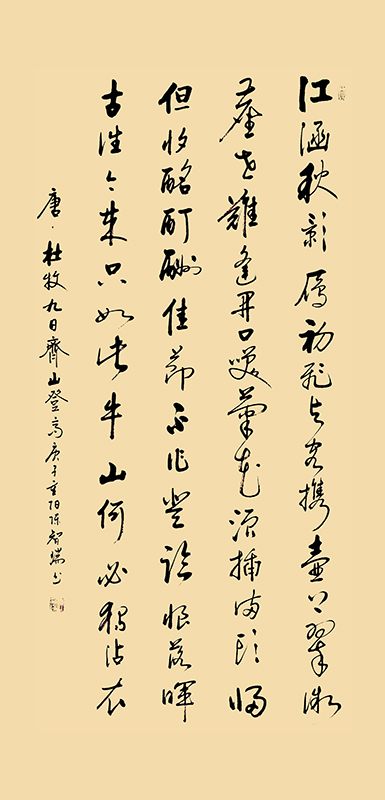 江涵秋影雁初飛与客携壺上翠微
塵世難逢開口笑菊花須插满頭歸
但将酩酊酬佳節不作登臨恨落暉
古往今来只如此牛山何必獨沾衣
唐·杜牧九日齊山登高庚子重阳陈智瑞书